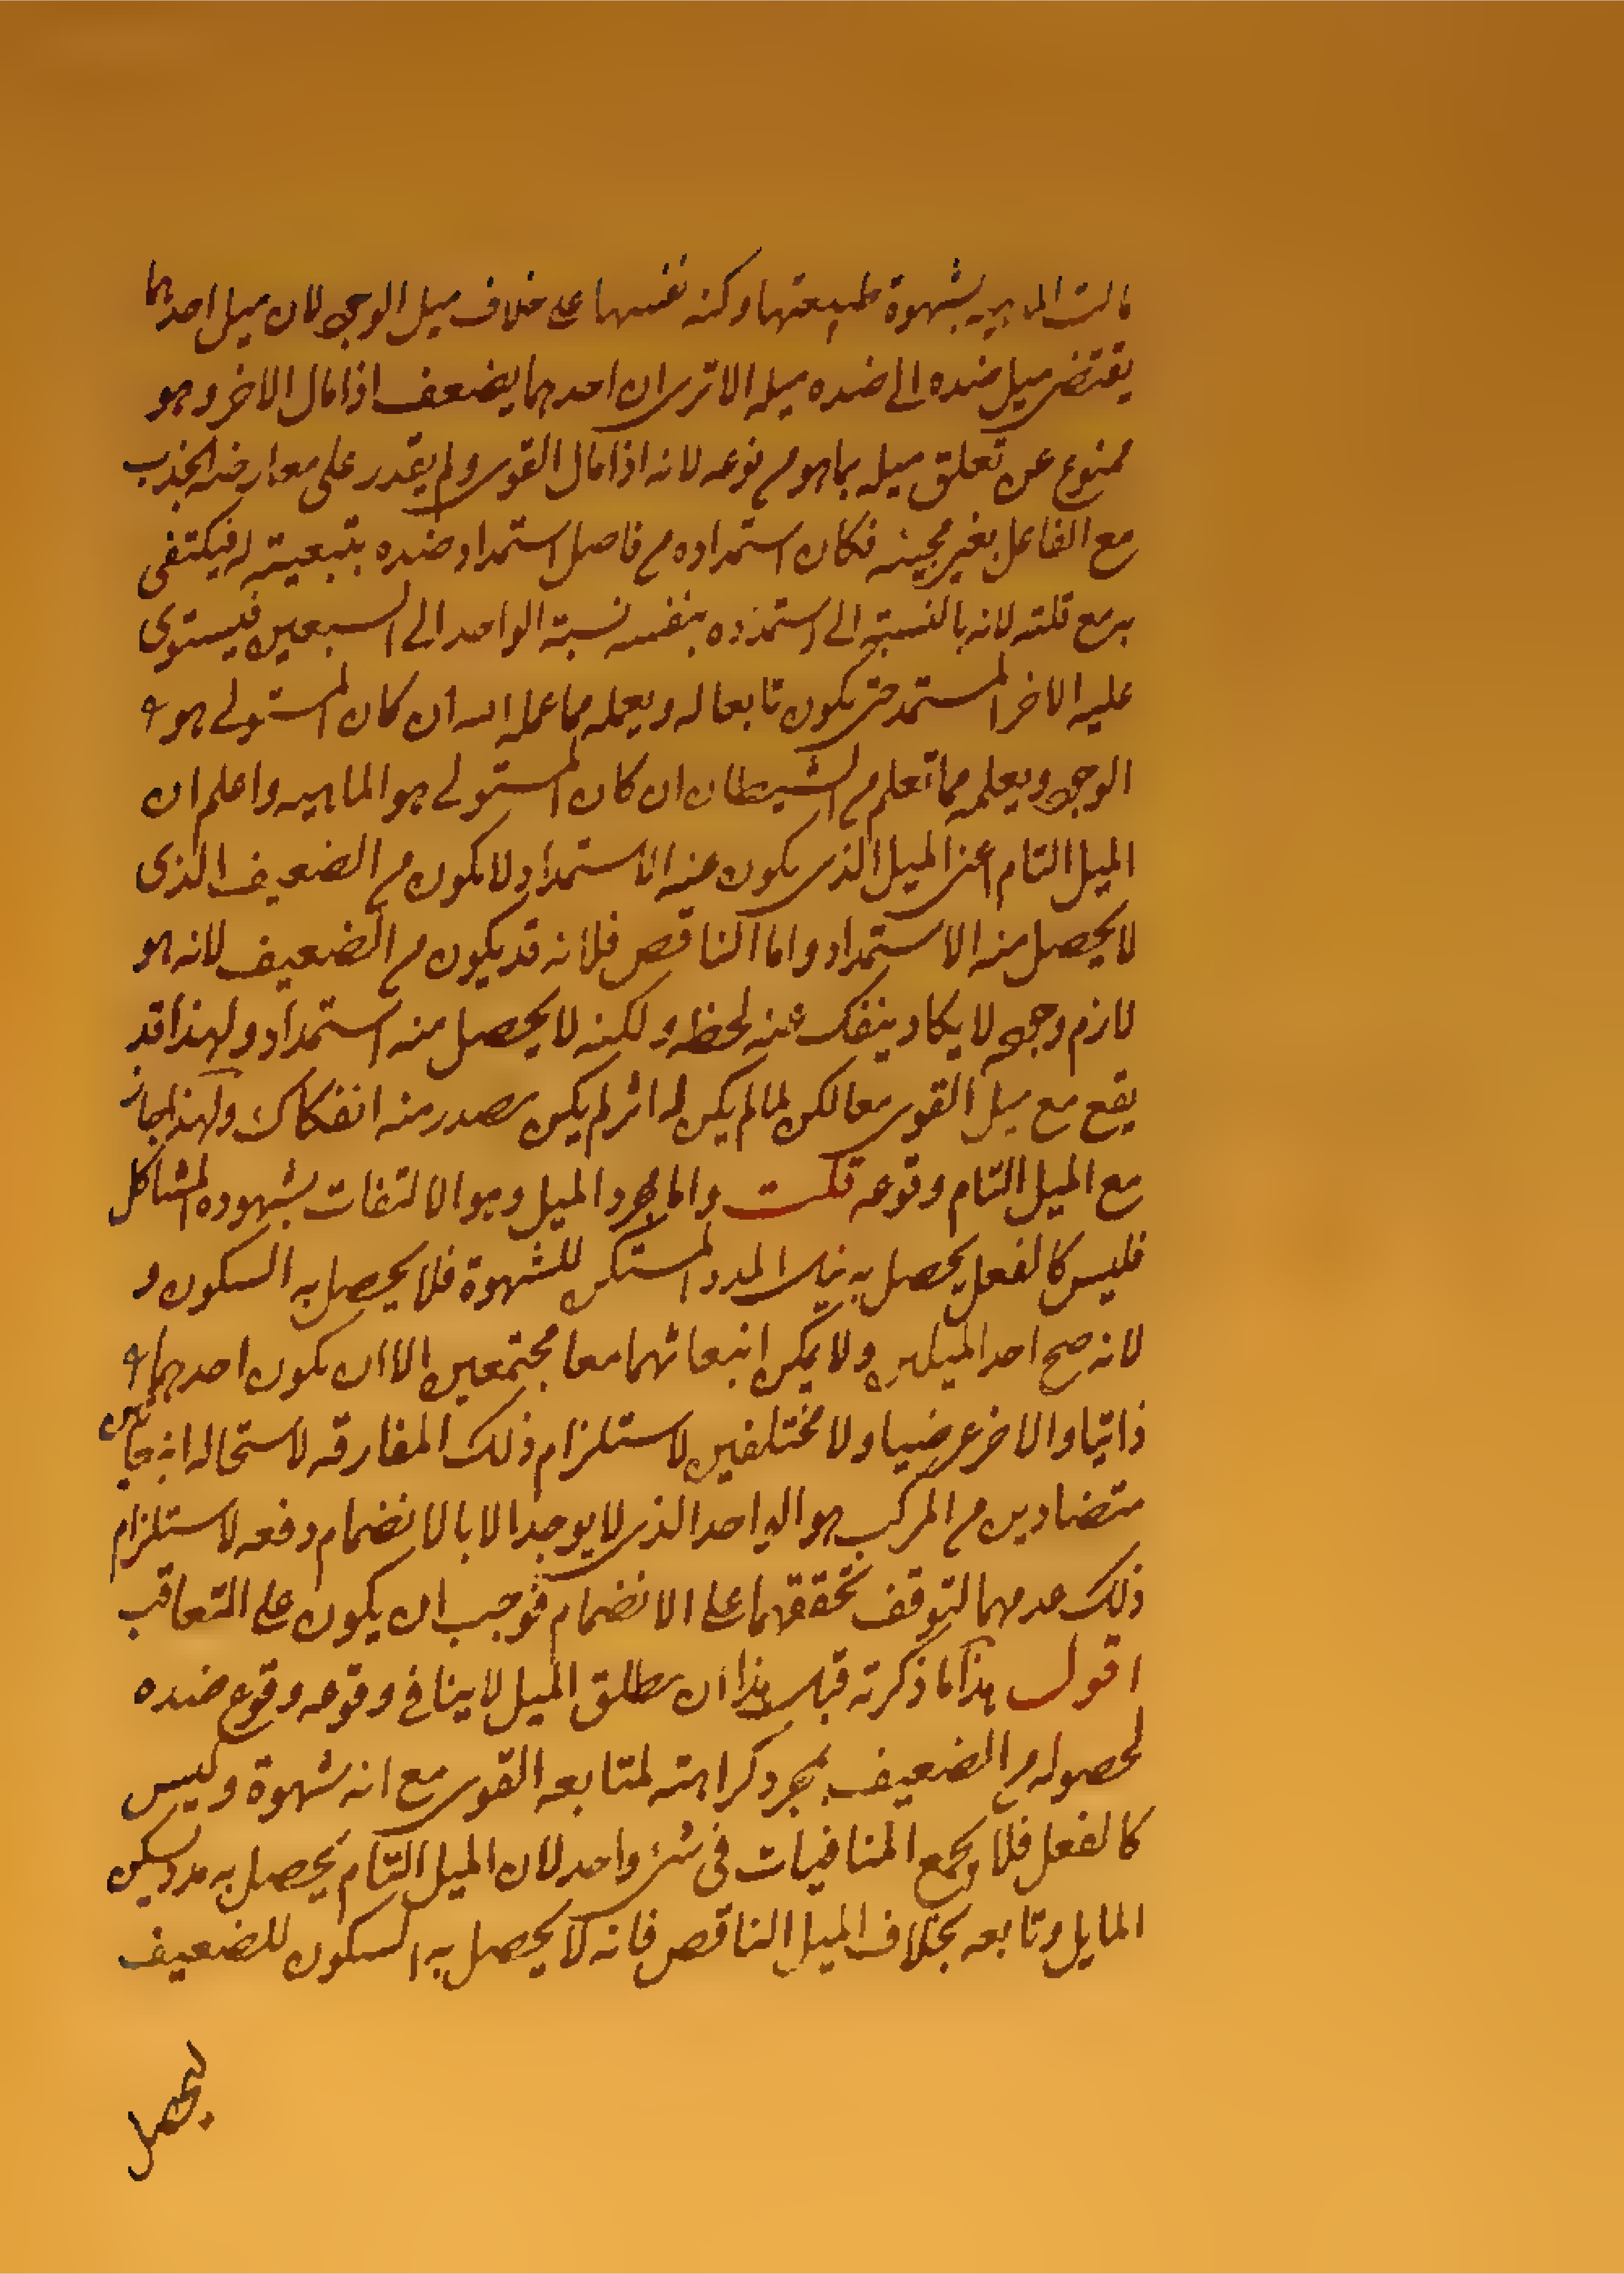 مالت الماهيه بشهوة طبيعتها وكنه نفسها على خلاف ميل الوجود لان ميل احدهما
يقتضى ميل ضده الى ضده ميله الا ترى ان احدهما يضعف اذا مال الاخر وهو
ممنوع عن تعلق ميله بما هو من نوعه لانه اذا مال القوى ولم يقدر على معارضته انجذب
مع الفاعل بغير محبته فكان استمداده من فاضل استمداد ضده بتبعيته له فيكتفى
به مع قلته لانه بالنسبة الى استمداده بنفسه نسبة الواحد الى السبعين فيستولى
عليه الاخر المستمد حتى يكون تابعا له ويعلمه مما علمه الله ان كان المستولى هو
الوجود ويعلمه مما تعلم من الشيطان ان كان المستولى هو الماهيه واعلم ان
الميل التام اعنى الميل الذى يكون عنه الاستمداد لا يكون من الضعيف الذى
لا يحصل منه الاستمداد واما الناقص فلانه قد يكون من الضعيف لانه هو
لازم وجوده لا يكاد ينفك عنه لحظه ولكنه لا يحصل منه استمداد ولهذا قد
يقع مع ميل القوى معا لكن لما لم يكن له اثر لم يكن مصدر منه انفكاك ولهذا جاز
مع الميل التام وقوعه قلت واما مجرد الميل وهو الالتفات بشهوده المشاكل
فليس كالفعل يحصل به نيل المدد المسكن للشهوة فلا يحصل به السكون و
لانه صح احد الميلين ولا يمكن انبعاثهما معا مجتمعين الا ان يكون احدهما
ذاتيا والاخر عرضيا ولا مختلفين لاستلزام ذلك المفارقه لاستحاله انبعاثين
متضادين من المركب هو الواحد الذى لا يوجد الا بالانضمام دفعه لاستلزام
ذلك عدمهما لتوقف تحققهما على الانضمام فوجب ان يكون على التعاقب
اقول هذا ما ذكرته قبل هذا ان مطلق الميل لا ينافى وقوعه وقوع ضده
لحصوله من الضعيف بمجرد كراهته لمتابعه القوى مع انه شهوة وليس
كالفعل فلا يجمع المنافيات فى شئ واحد لان الميل التام يحصل به مدد يسكن
المايل وتابعه بخلاف الميل الناقص فانه لا يحصل به السكون للضعيف
ليحصل